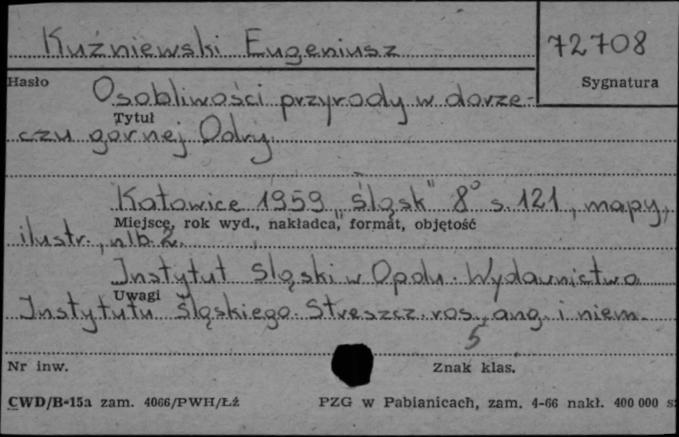 Kuźniewski Eugeniusz
72708
Hasło
Sygnatura
Osobliwości przyrody w dorze-
Tytuł
czu górnej Odry.
Katowice 1959 „Śląsk" 8° s. 121, mapy,
Miejsce, rok wyd., nakładca, format, objętość
ilustr., nlb. 2.
Instytut Śląski w Opolu. Wydawnictwa
Uwagi
Instytutu Śląskiego. Streszcz. ros., ang. i niem.
5
Nr inw.
Znak klas.
CWD/B-15a zam. 4066/PWH/Łż
PZG w Pabianicach, zam. 4-66 nakł. 400 000